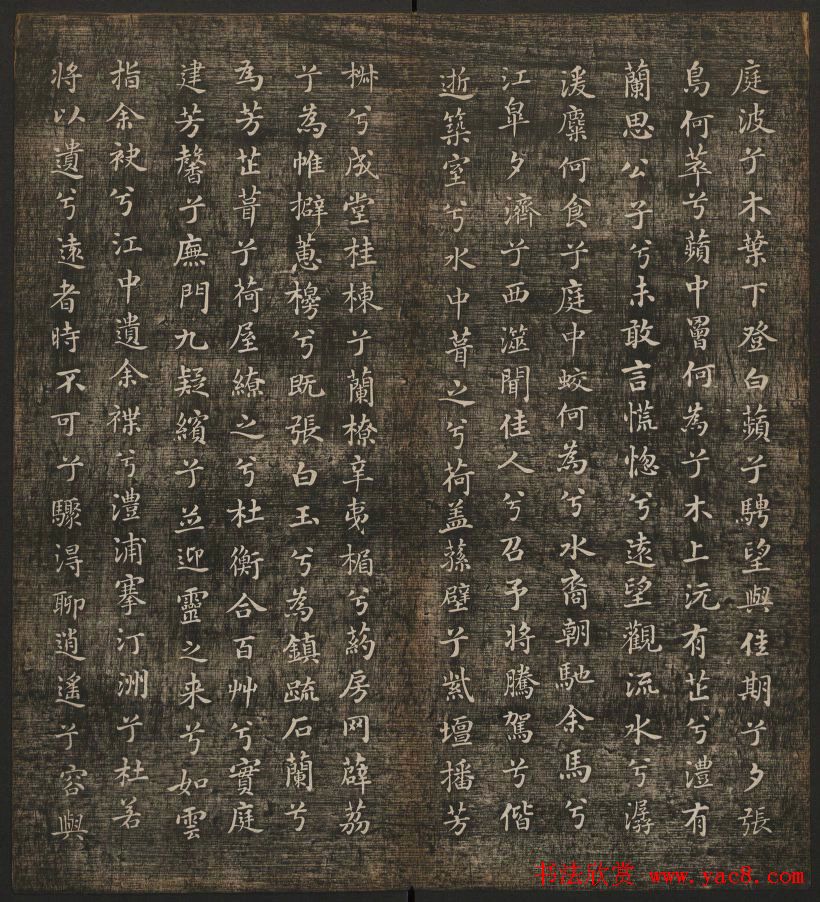 庭波兮木葉下登白蘋兮騁望與佳期兮夕張
鳥何萃兮蘋中罾何為兮木上沅有芷兮澧有
蘭思公子兮未敢言慌惚兮遠望觀流水兮潺
湲麋何食兮庭中蛟何為兮水裔朝馳余馬兮
江皐夕濟兮西澨聞佳人兮召予將騰駕兮偕
逝築室兮水中葺之兮荷盖蓀壁兮紫壇播芳
椒兮成堂桂棟兮蘭橑辛夷楣兮葯房网薜荔
兮為帷擗蕙櫋兮既張白玉兮為鎮疏石蘭兮
為芳芷葺兮荷屋繚之兮杜衡合百艸兮實庭
建芳馨兮廡門九疑繽兮並迎靈之来兮如雲
指余袂兮江中遺余褋兮澧浦搴汀洲兮杜若
將以遺兮遠者時不可兮驟淂聊逍遙兮容與
书法欣赏 www.yac8.com